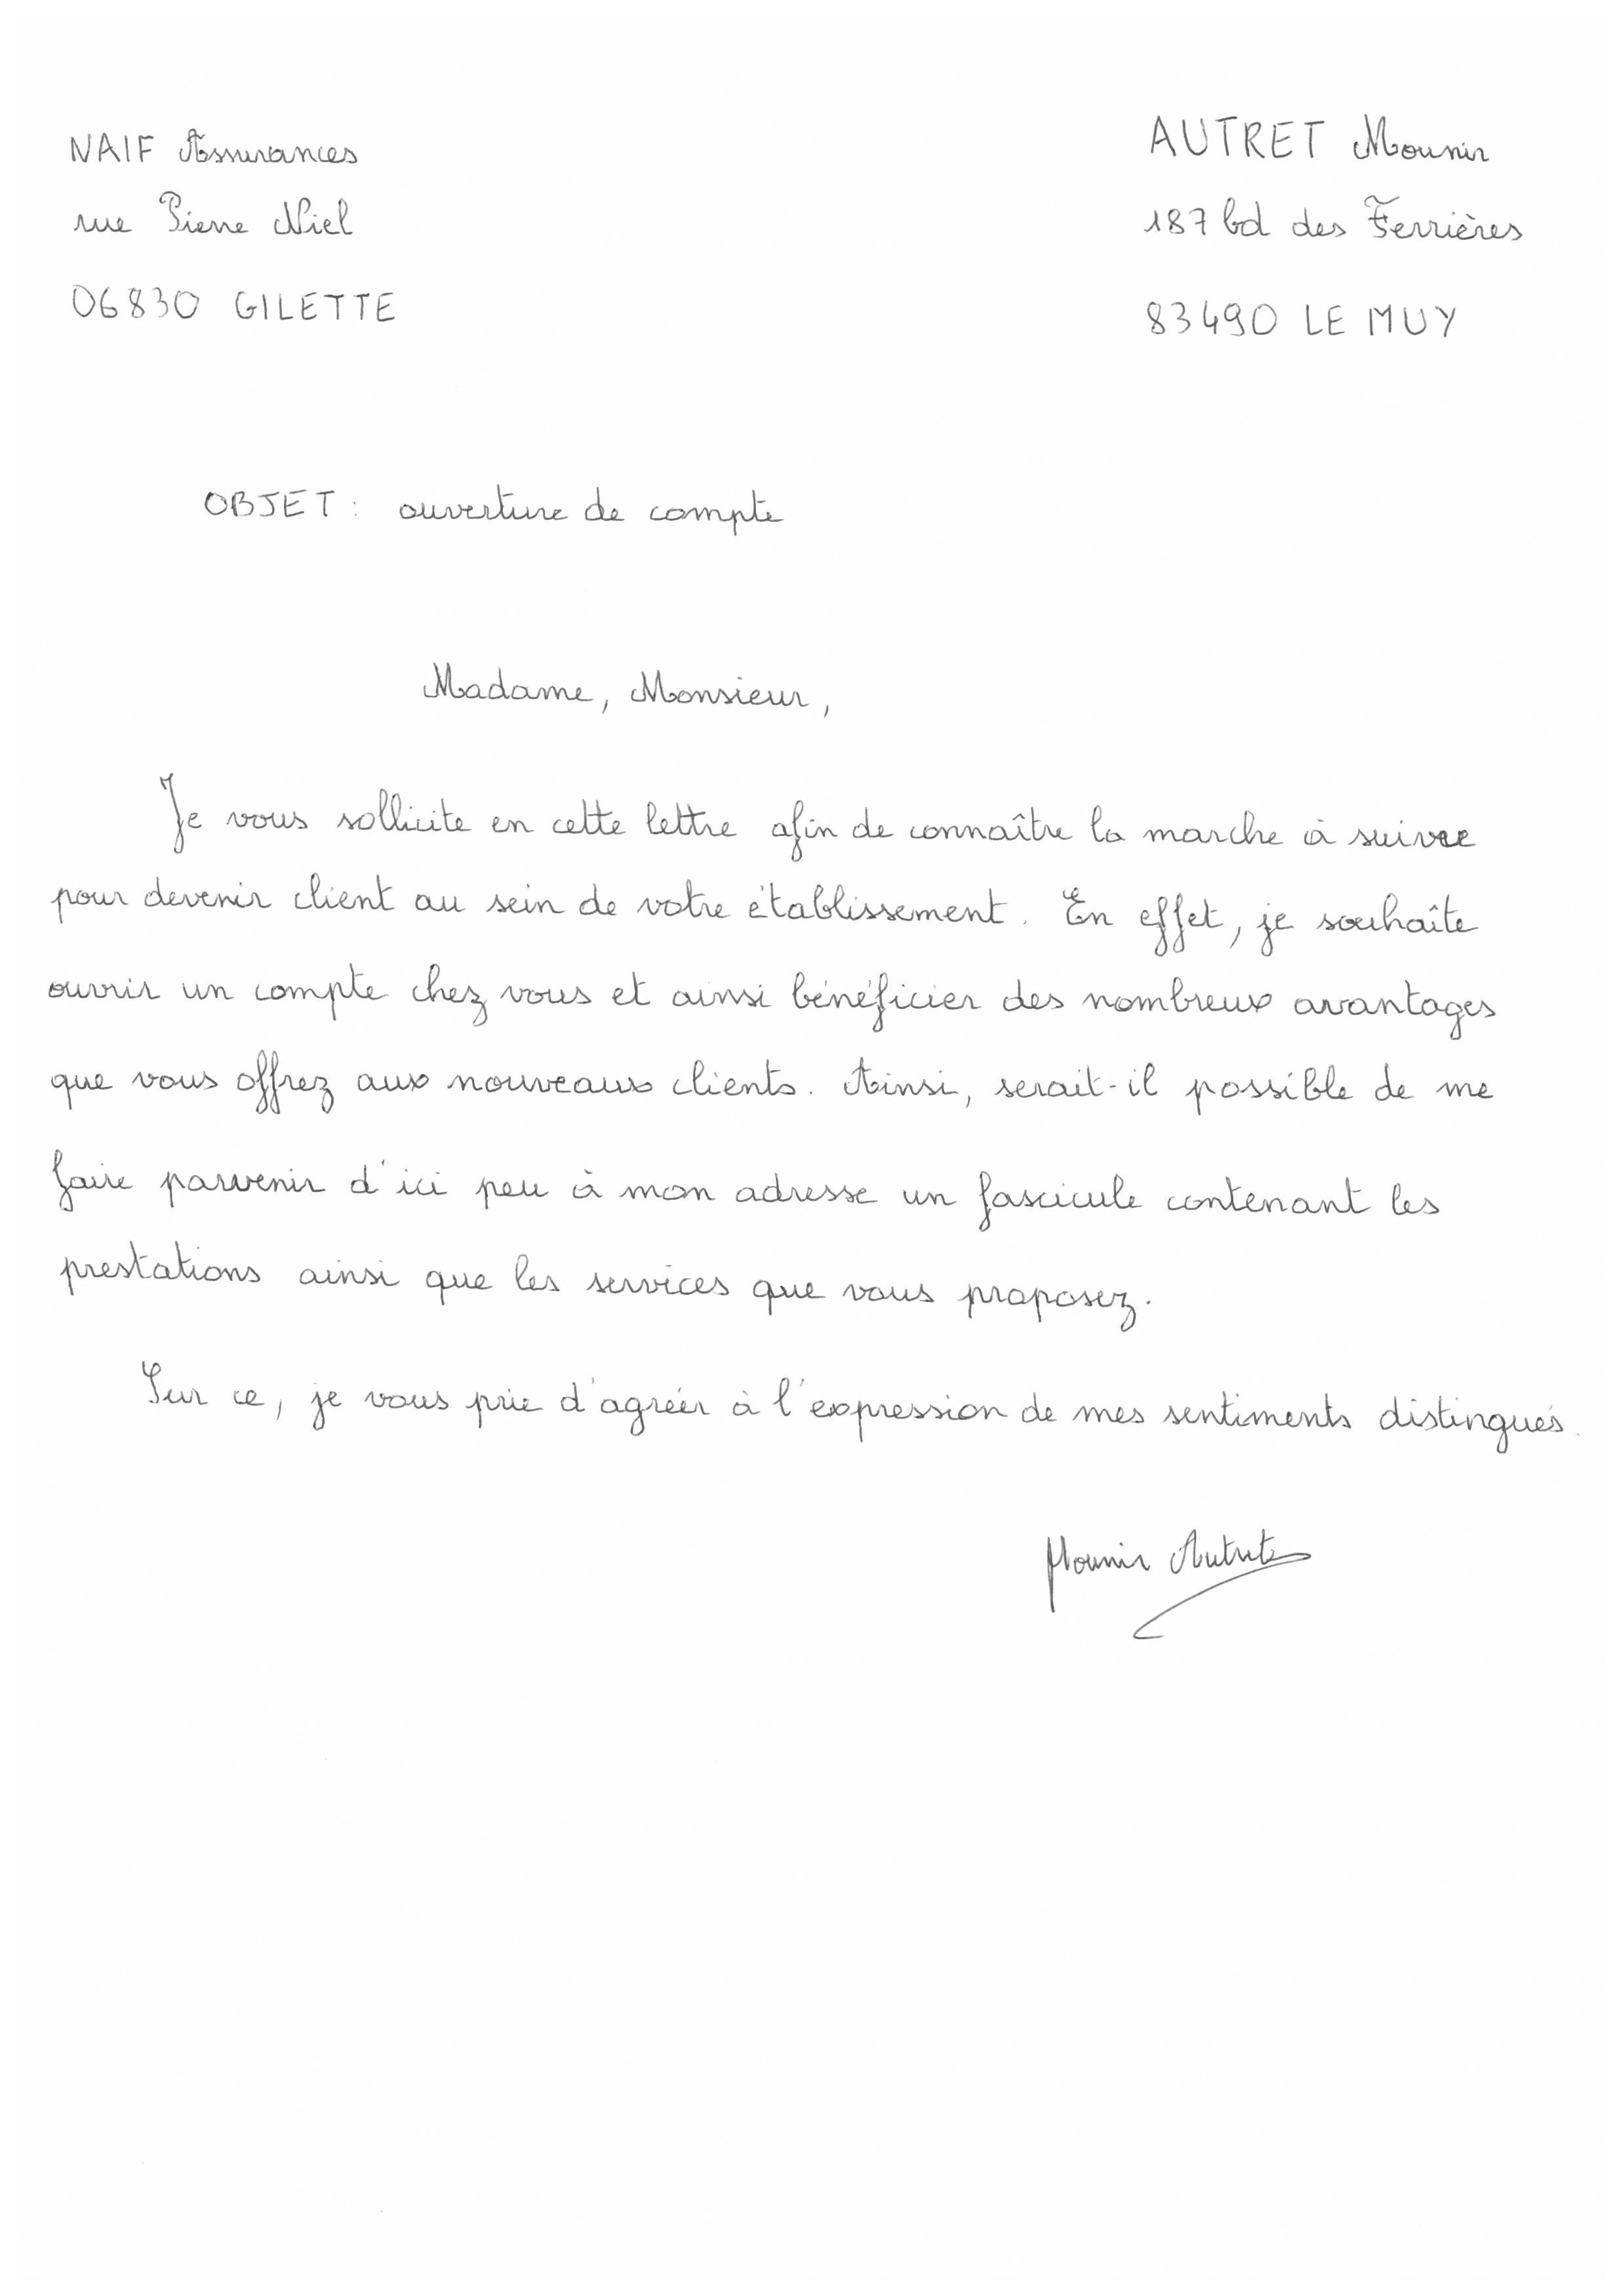 NAIF Assurances
rue Pierre Niel
06830 GILETTE
AUTRET Mounir
187 bd des Ferrières
83490 LE MUY
OBJET : ouverture de compte
Madame, Monsieur,
Je vous sollicite en cette lettre afin de connaître la marche à suivre
pour devenir client au sein de votre établissement. En effet, je souhaîte
ouvrir un compte chez vous et ainsi bénéficier des nombreux avantages
que vous offrez aux nouveaux clients. Ainsi, serait-il possible de me
faire parvenir d'ici peu à mon adresse un fascicule contenant les
prestations ainsi que les services que vous proposez.
Sur ce, je vous prie d'agréer à l'expression de mes sentiments distingués.
Mounir Autret